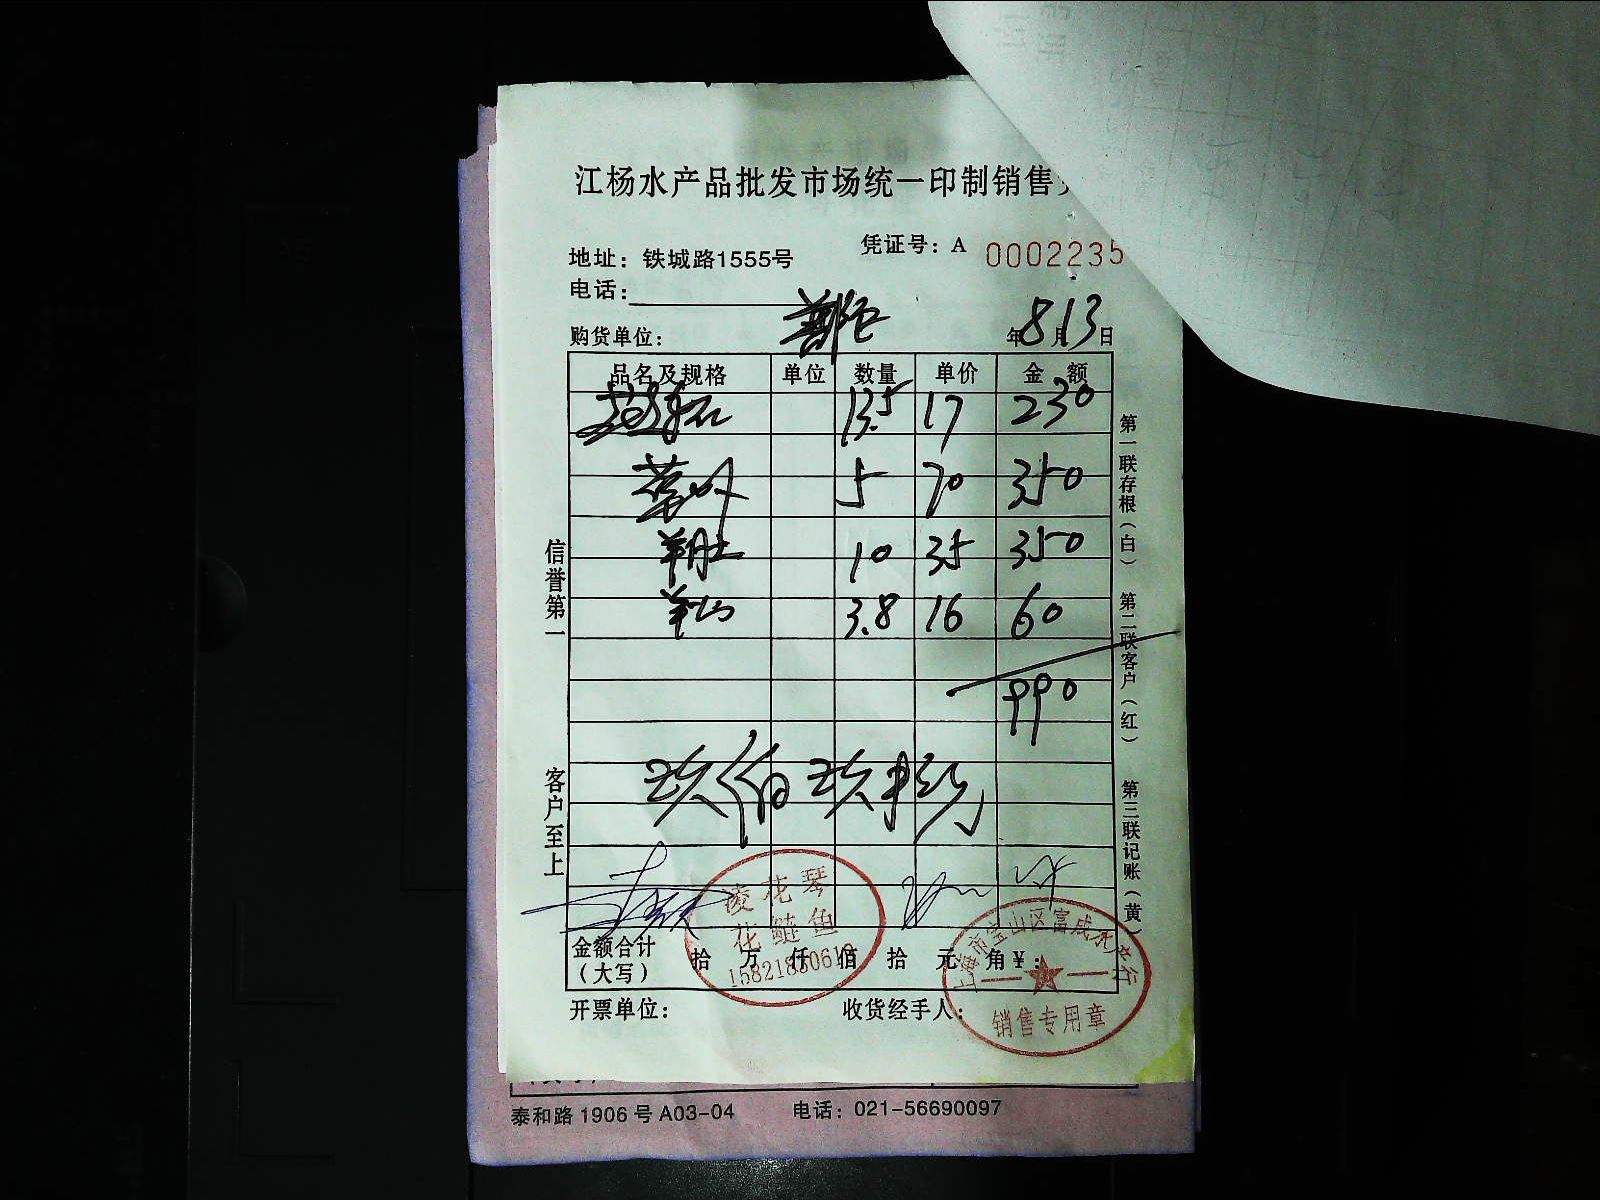 江杨水产品批发市场统一印制销售
凭证号：A 0002235
地址：铁城路1555号
电话：
购货单位： 年8月13日
品名及规格 单位 数量 单价 金额
13.5 17 230
5 70 350
羊肚 10 35 350
3.8 16 60
990
玖佰玖拾元
金额合计（大写） 拾 万 仟 佰 拾 元 角 ¥：
开票单位： 收货经手人：
信誉第一
客户至上
第一联存根（白） 第二联客户（红） 第三联记账（黄）
凌花琴
花鲢鱼
上海市宝山区富成水产行
销售专用章
泰和路1906号A03-04 电话：021-56690097